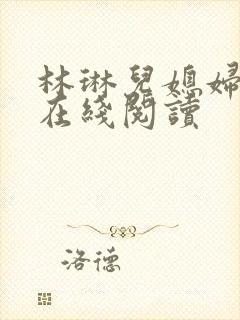 林琳兒媳婦
在綫閱讀
洛德